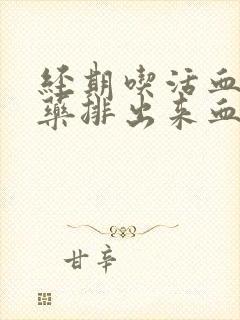 经期喫活血
藥排出来血
甘辛